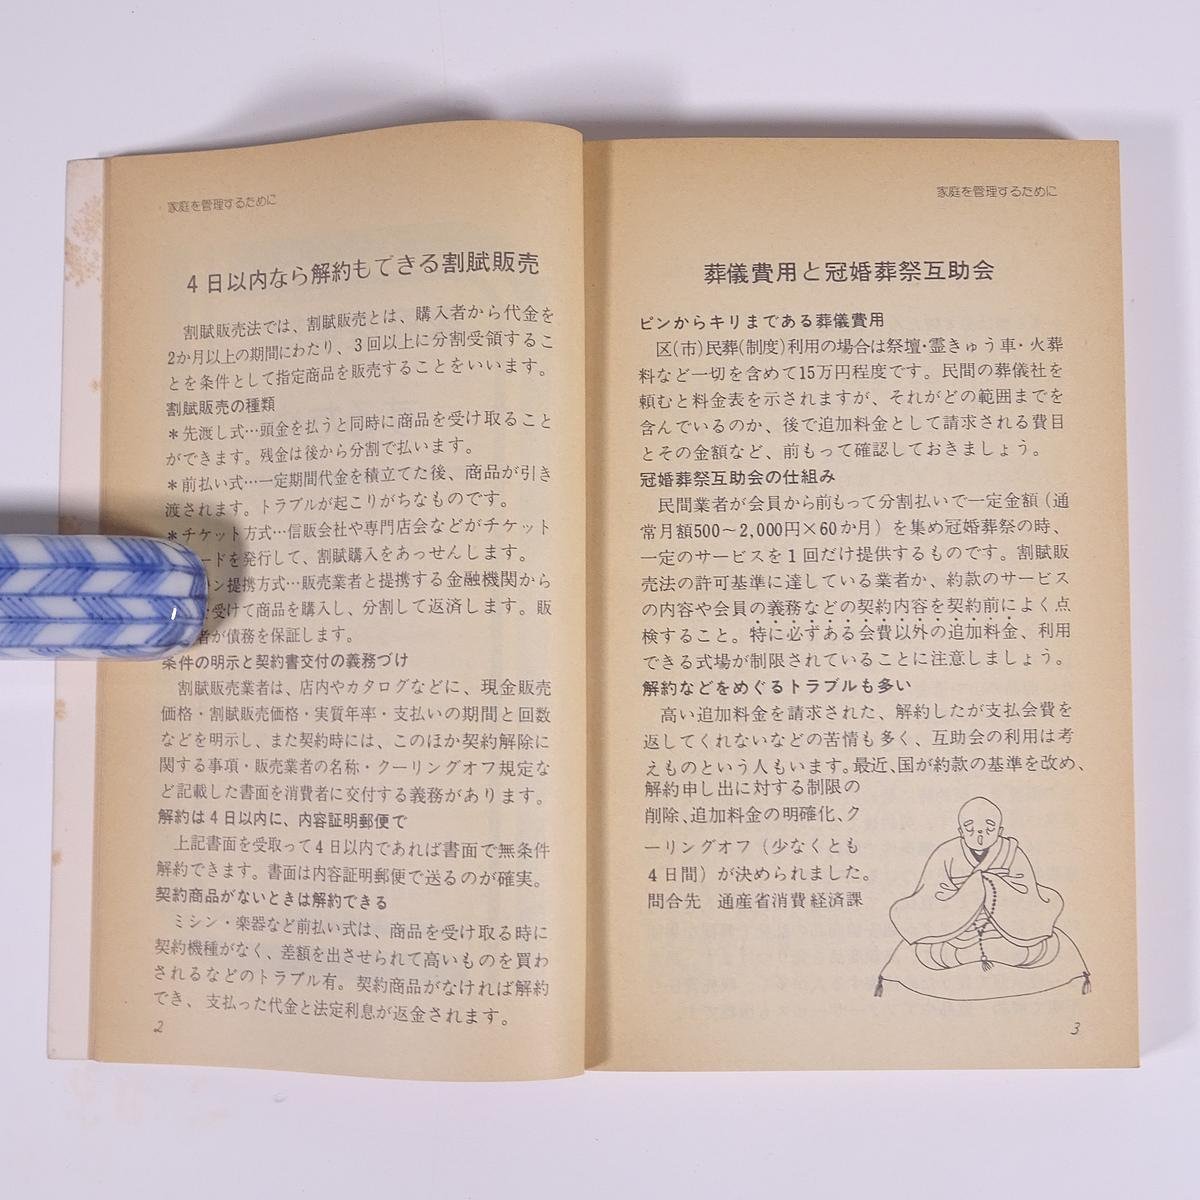 家庭を管理するために
4日以内なら解約もできる割賦販売
割賦販売法では、割賦販売とは、購入者から代金を
2か月以上の期間にわたり、3回以上に分割受領するこ
とを条件として指定商品を販売することをいいます。
割賦販売の種類
＊先渡し式…頭金を払うと同時に商品を受け取ること
ができます。残金は後から分割で払います。
＊前払い式…一定期間代金を積立てた後、商品が引き
渡されます。トラブルが起こりがちなものです。
＊チケット方式…信販会社や専門店会などがチケット
ードを発行して、割賦購入をあっせんします。
ン提携方式…販売業者と提携する金融機関から
受けて商品を購入し、分割して返済します。販
者が債務を保証します。
条件の明示と契約書交付の義務づけ
割賦販売業者は、店内やカタログなどに、現金販売
価格・割賦販売価格・実質年率・支払いの期間と回数
などを明示し、また契約時には、このほか契約解除に
関する事項・販売業者の名称・クーリングオフ規定な
ど記載した書面を消費者に交付する義務があります。
解約は4日以内に、内容証明郵便で
上記書面を受取って4日以内であれば書面で無条件
解約できます。書面は内容証明郵便で送るのが確実。
契約商品がないときは解約できる
ミシン・楽器など前払い式は、商品を受け取る時に
契約機種がなく、差額を出させられて高いものを買わ
されるなどのトラブル有。契約商品がなければ解約
でき、支払った代金と法定利息が返金されます。
2
家庭を管理するために
葬儀費用と冠婚葬祭互助会
ピンからキリまである葬儀費用
区(市)民葬(制度)利用の場合は祭壇・霊きゅう車・火葬
料など一切を含めて15万円程度です。民間の葬儀社を
頼むと料金表を示されますが、それがどの範囲までを
含んでいるのか、後で追加料金として請求される費目
とその金額など、前もって確認しておきましょう。
冠婚葬祭互助会の仕組み
民間業者が会員から前もって分割払いで一定金額（通
常月額500～2,000円×60か月）を集め冠婚葬祭の時、
一定のサービスを1回だけ提供するものです。割賦販
売法の許可基準に達している業者か、約款のサービス
の内容や会員の義務などの契約内容を契約前によく点
検すること。特に必ずある会費以外の追加料金、利用
できる式場が制限されていることに注意しましょう。
解約などをめぐるトラブルも多い
高い追加料金を請求された、解約したが支払会費を
返してくれないなどの苦情も多く、互助会の利用は考
えものという人もいます。最近、国が約款の基準を改め、
解約申し出に対する制限の
削除、追加料金の明確化、ク
ーリングオフ（少なくとも
4日間）が決められました。
問合先　通産省消費経済課
3